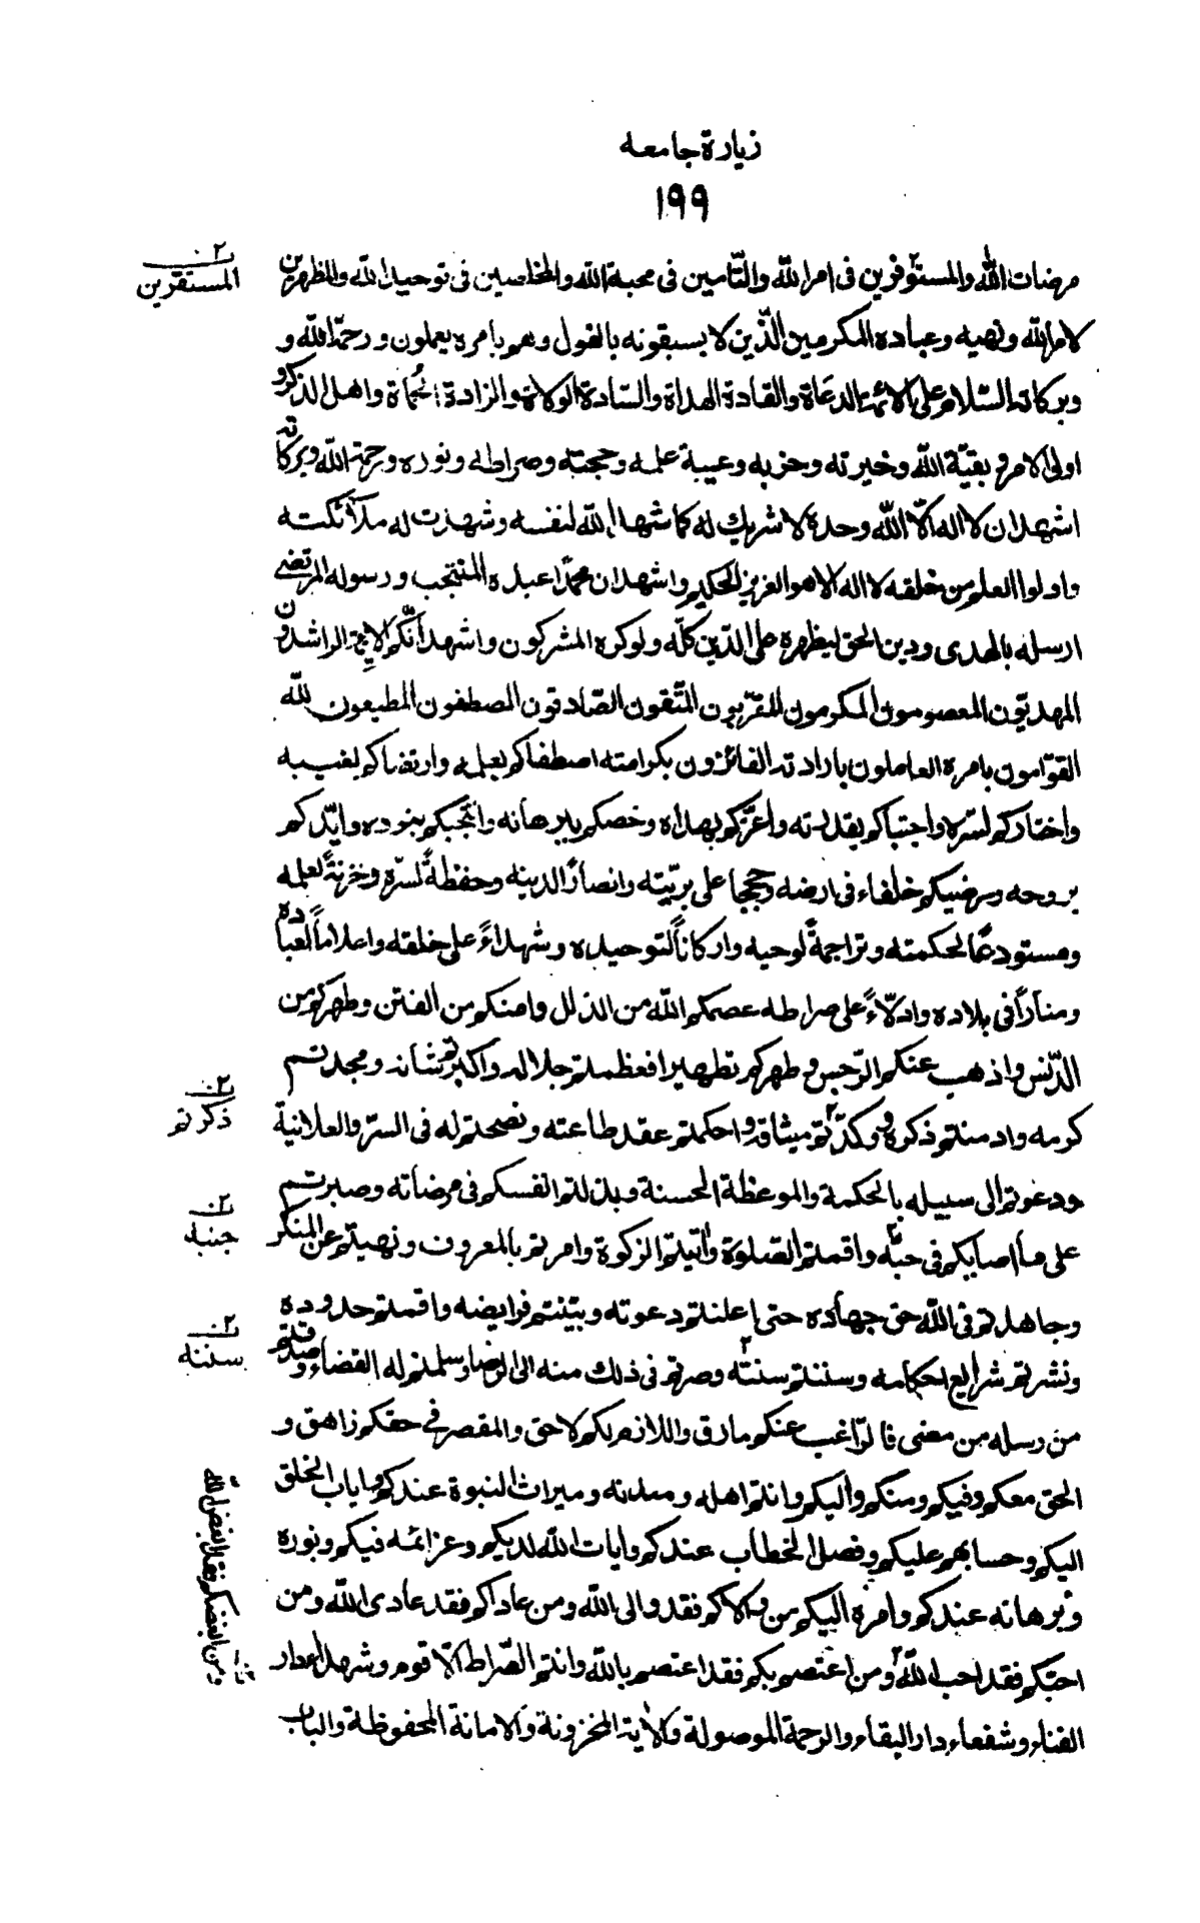 زیارة جامعه
۱۹۹
مرضات الله والمستوفرین فی امر الله والتّامین فی محبة الله والمخلصین فی توحید الله والمظهرین
المستقرین
لامر الله ونهیه وعباده المکرمین الّذین لا یسبقونه بالقول وهم بامره یعملون ورحمة الله و
وبرکاته السّلام علی الائمة الدعاة والقادة الهداة والسّادة الولاة والزادة الحُماة واهل الذکر و
اولی الامر وبقیّة الله وخیرته وحزبه وعیبة علمه وحجته وصراطه ونوره ورحمة الله وبرکاته
اشهد ان لا اله الّا الله وحده لا شریک له کما شهد الله لنفسه وشهدت له ملآئکته
واولوا العلم من خلقه لا اله الا هو العزیز الحکیم واشهد ان محمّداً عبده المنتجب ورسوله المرتضی
ارسله بالهدی ودین الحق لیظهره علی الدّین کلّه ولو کره المشرکون واشهد أنّکم الائمة الراشدون
المهدیّون المعصومون المکرمون المقرّبون المتّقون الصّادقون المصطفون المطیعون للّه
القوّامون بامره العاملون بارادته الفائزون بکرامته اصطفاکم بعلمه وارتضاکم لغیبه
واختارکم لسّره واجتباکم بقدرته واعزّکم بهداه وخصکم ببرهانه وانتجبکم بنوره وایّدکم
بروحه ورضیکم خلفاء فی ارضه وحججا علی بریّته وانصاراً لدینه وحفظةً لسّره وخزنةً لعلمه
ومستودعاً لحکمته وتراجمةً لوحیه وارکاناً لتوحیده وشهداءً علی خلقه واعلاماً لعباده
ومناراً فی بلاده وادلّاءً علی صراطه عصمکم الله من الذلل وامنکم من الفتن وطهرکم من
الدّنس واذهب عنکم الرّجس وطهرکم تطهیرا فعظمتم جلاله واکبرتم شانه ومجدتم
کرمه وادمنتم ذکره ووکدّتم میثاقه واحکمتم عقد طاعته ونصحتم له فی السرّ والعلانیة
ذکرتم
ودعوتم الی سبیله بالحکمة والموعظة الحسنة وبذلتم انفسکم فی مرضاته وصبرتم
علی ما اصابکم فی حبّه واقمتم الصّلوة وآتیتم الزکوة وامرتم بالمعروف ونهیتم عن المنکر
جنبه
وجاهدتم فی الله حق جهاده حتی اعلنتم دعوته وبیّنتم فرایضه واقمتم حدوده
ونشرتم شرایع احکامه وسننتم سنتّه وصرتم فی ذلک منه الی الرضا وسلمتم له القضاء وصدقتم
سننه
من رسله من مضی فالرّاغب عنکم مارق واللازم لکم لاحق والمقصر فی حقکم زاهق و
الحق معکم وفیکم ومنکم والیکم وانتم اهله ومعدنه ومیراث النبوة عندکم وایاب الخلق
الیکم وحسابهم علیکم وفصل الخطاب عندکم وایات الله لدیکم وعزائمه فیکم ونوره
وبرهانه عندکم وامره الیکم من والاکم فقد والی الله ومن عاداکم فقد عادی الله ومن
احبّکم فقد احب الله ومن اعتصم بکم فقد اعتصم بالله وانتم الصّراط الاقوم وشهداء دار
ومن ابغضکم فقد ابغض الله
الفناء وشفعاء دار البقاء والرحمة الموصولة والایة المخزونة والامانة المحفوظة والباب